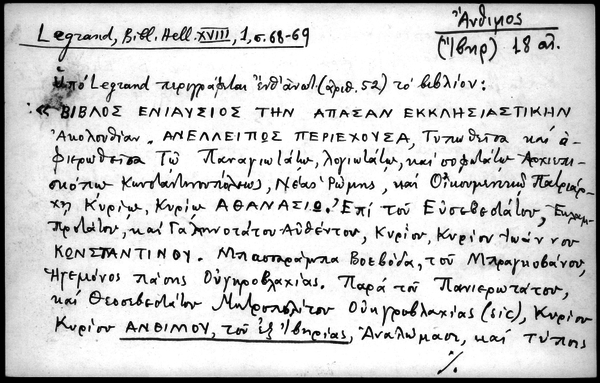 Legrand, Bibl. Hell. XVIII, 1, σ. 68-69
Ἄνθιμος
(Ἴβηρ) 18 αἰ.
Ὑπὸ Legrand περιγράφεται ἐνθ' ἀνωτ. (ἀριθ. 52) τὸ βιβλίον:
«ΒΙΒΛΟΣ ΕΝΙΑΥΣΙΟΣ ΤΗΝ ΑΠΑΣΑΝ ΕΚΚΛΗΣΙΑΣΤΙΚΗΝ
Ἀκολουθίαν. ΑΝΕΛΛΕΙΠΩΣ ΠΕΡΙΕΧΟΥΣΑ, Τυπωθεῖσα καὶ ἀ-
φιερωθεῖσα Τῷ Παναγιωτάτῳ, λογιωτάτῳ, καὶ σοφωτάτῳ Ἀρχιεπι-
σκόπῳ Κωνσταντινουπόλεως, Νέας Ῥώμης, καὶ Οἰκουμενικῷ Πατριάρ-
χῃ Κυρίῳ, Κυρίῳ ΑΘΑΝΑΣΙΩ. Ἐπὶ τοῦ Εὐσεβεστάτου, Ἐκλαμ-
προτάτου, καὶ Γαληνοτάτου Αὐθέντου, Κυρίου, Κυρίου Ἰωάννου
ΚΩΝΣΤΑΝΤΙΝΟΥ. Μπασαράμπα Βοεβόδα, τοῦ Μπραγκοβάνου,
Ἡγεμόνος πάσης Οὐγκροβλαχίας. Παρὰ τοῦ Πανιερωτάτου,
καὶ Θεοσεβεστάτου Μητροπολίτου Οὐγκροβλαχίας (sic), Κυρίου
Κυρίου ΑΝΘΙΜΟΥ, τοῦ ἐξ Ἰβηρίας, Ἀναλώμασι, καὶ τύποις
./.